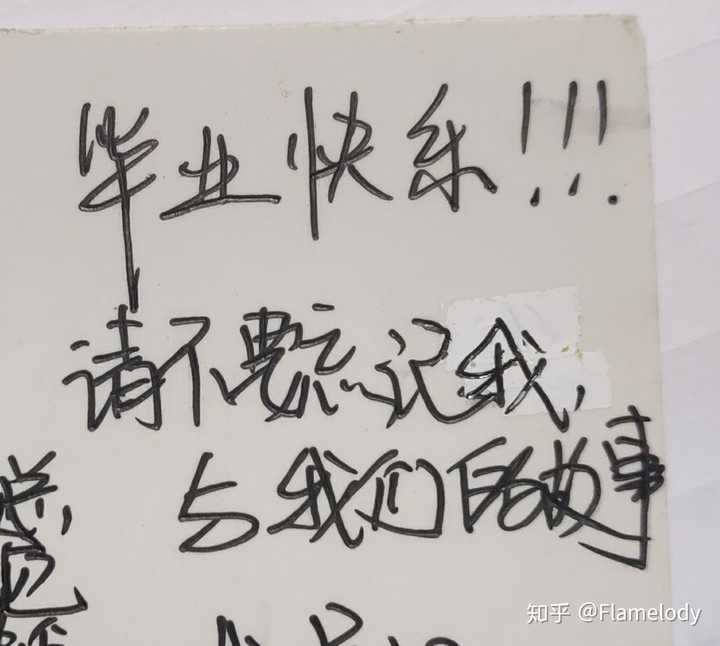 毕业快乐!!!
请不要忘记我,
与我们的故事
知乎 @Flamelody